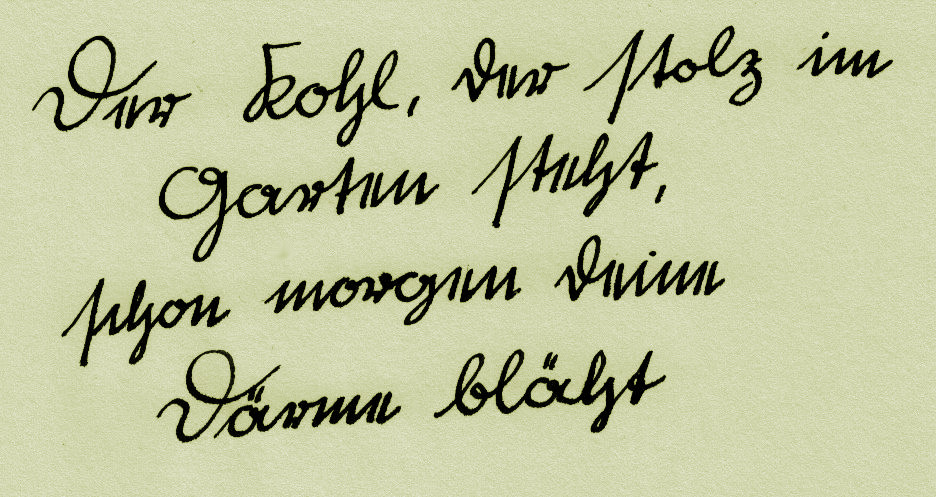 Der Kohl, der stolz im
Garten steht,
schon morgen deine
Därme bläht